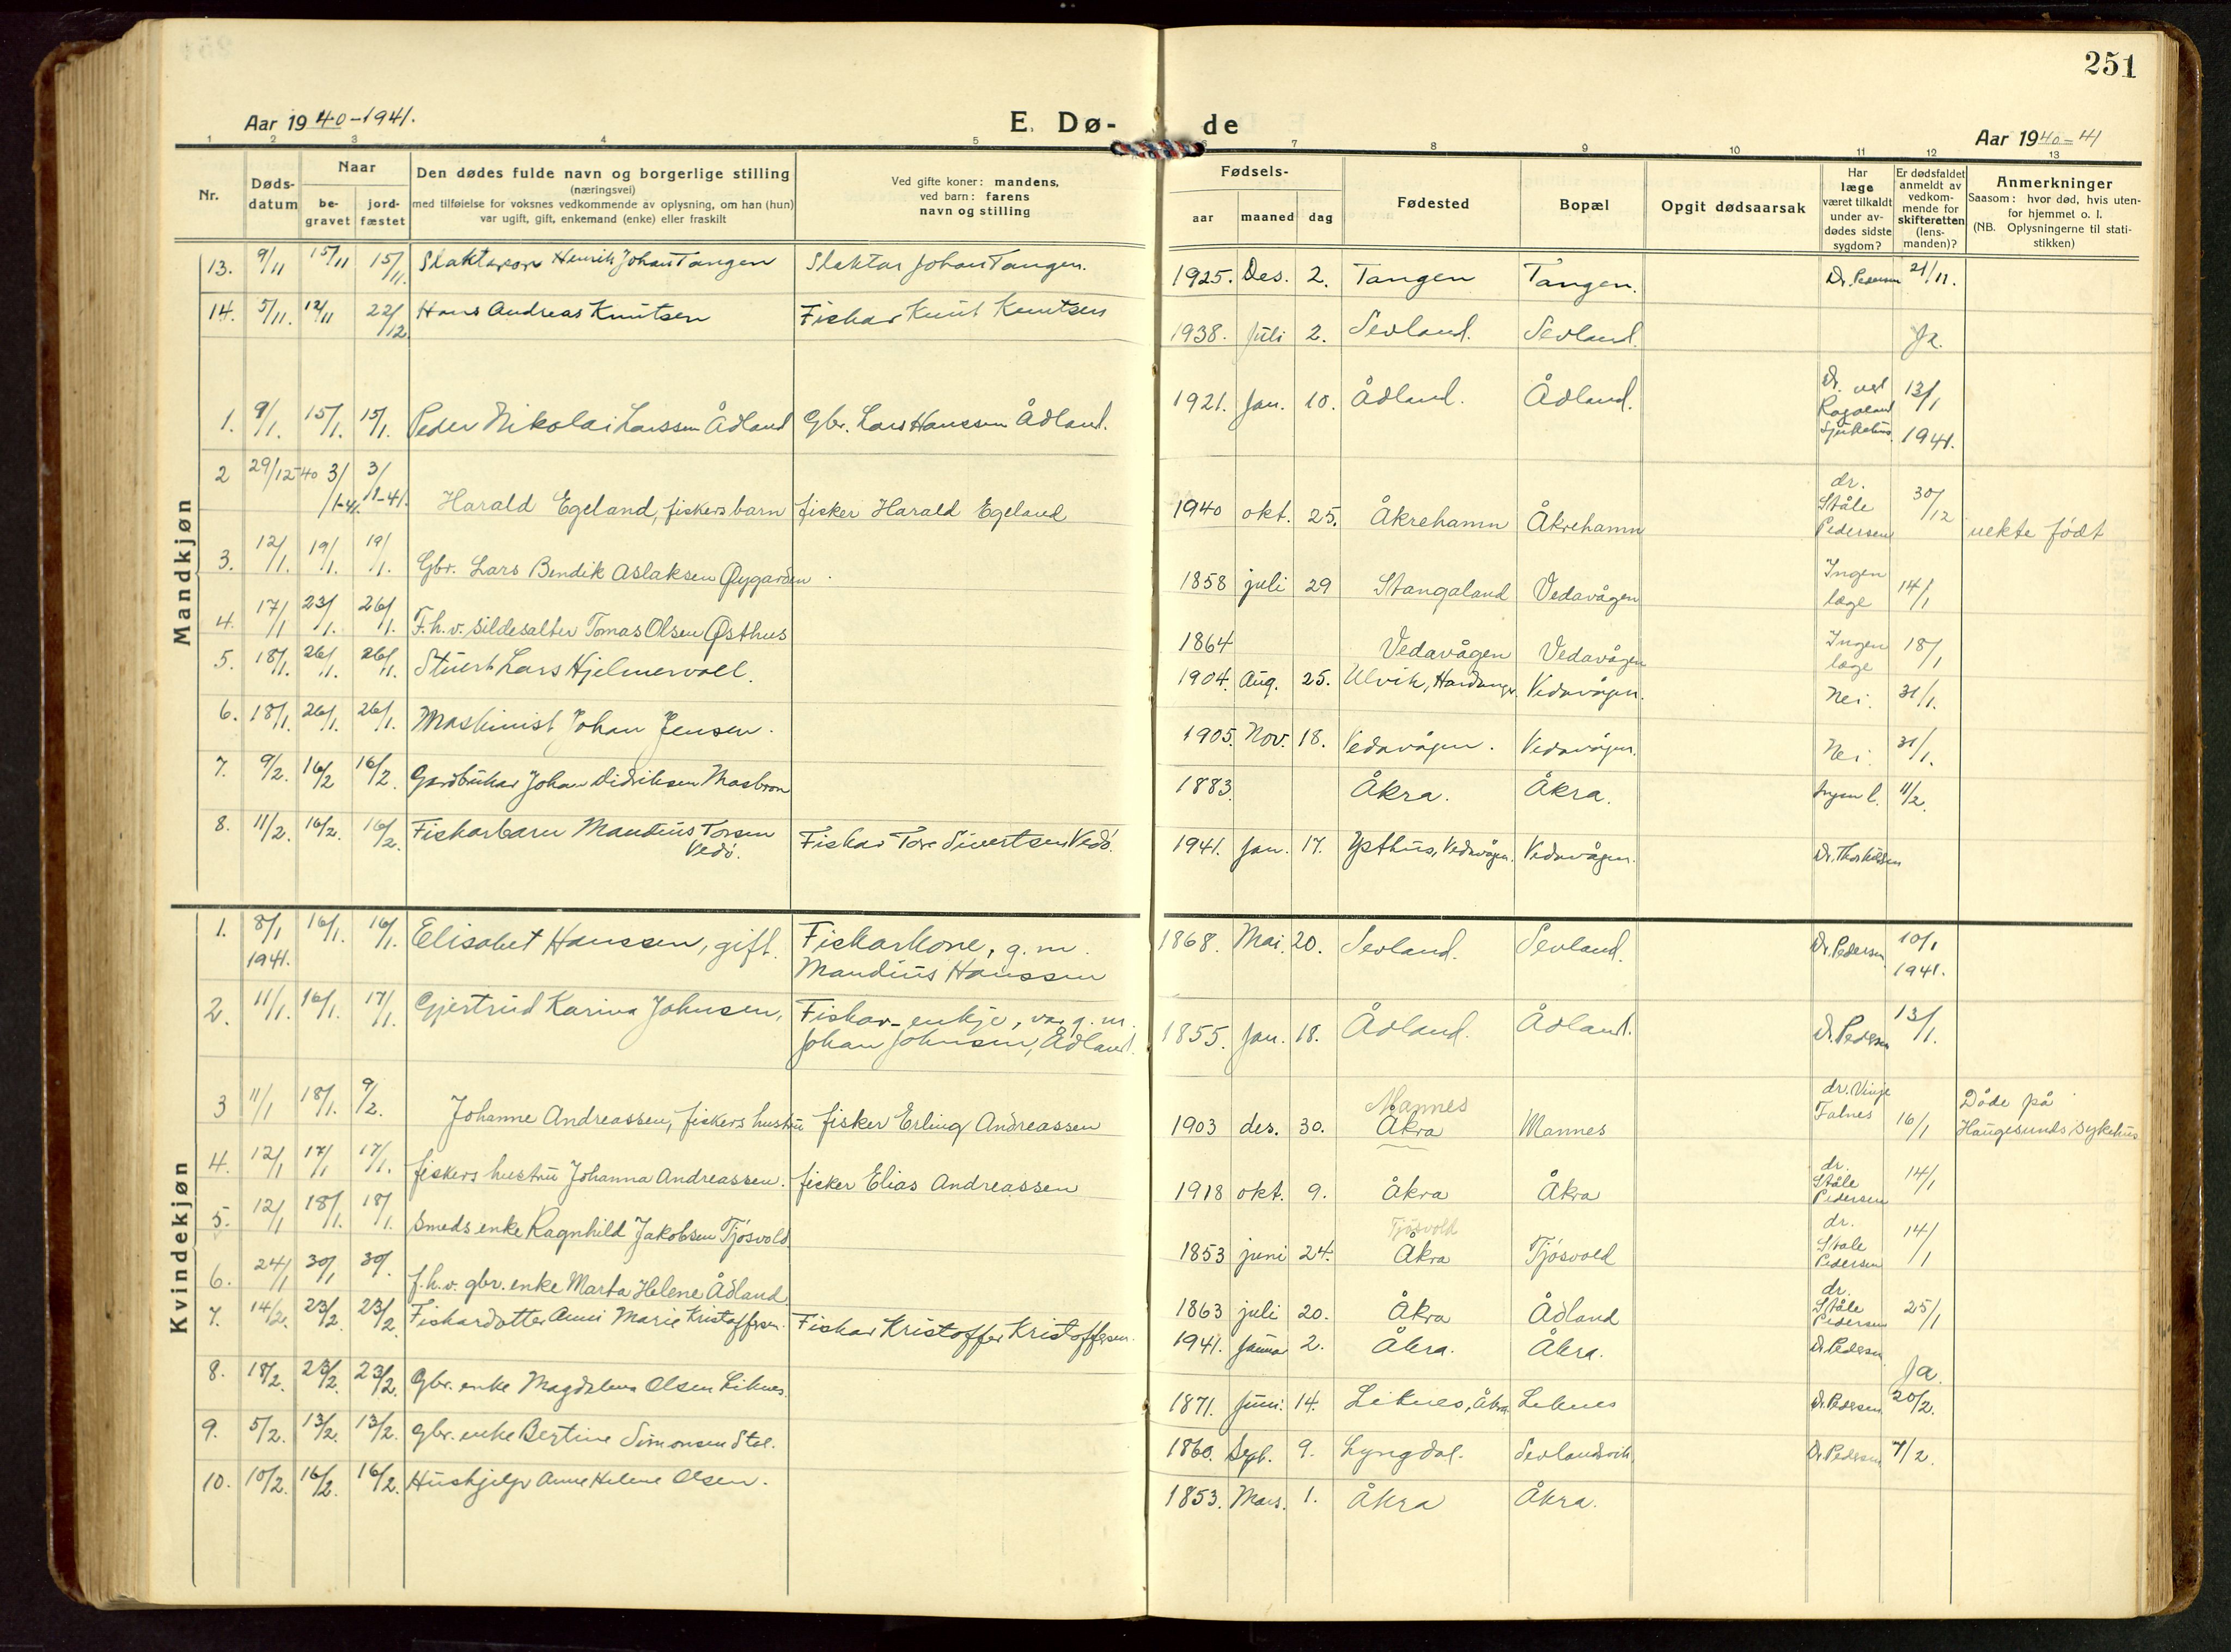 251
Aar 1940-1941.
E. Dø-
de
Aar 1940-41
1 2 3 4 5 6 7 8 9 10 11 12 13
Nr.
Døds-
datum
Naar
be-
gravet
jord-
fæstet
Den dødes fulde navn og borgerlige stilling
(næringsvei)
med tilføielse for voksnes vedkommende av oplysning, om han (hun)
var ugift, gift, enkemand (enke) eller fraskilt
Ved gifte koner: mandens,
ved barn: farens
navn og stilling
Fødsels-
aar maaned dag
Fødested
Bopæl
Opgit dødsaarsak
Har
læge
været tilkaldt
under av-
dødes sidste
sygdom?
Er dødsfaldet
anmeldt av
vedkom-
mende for
skifteretten
(lens-
manden)?
Anmerkninger
Saasom: hvor død, hvis uten-
for hjemmet o. l.
(NB. Oplysningerne til stati-
stikken)
Mandkjøn
13. 9/11 15/11 15/11. Slaktarson Henrik Johan Tangen Slaktar Johan Tangen. 1925. Des. 2. Tangen Tangen. Dr. Pedersen 21/11.
14. 5/11. 12/11 22/12. Hans Andreas Knutsen Fiskar Knut Knutsen 1938. Juli 2. Sevland. Sevland. Ja.
1. 9/1. 15/1. 15/1. Peder Nikolai Larssen Ådland Gbr. Lars Hanssen Ådland. 1921. Jan. 10. Ådland. Ådland. Dr. ved
Rogaland
Sjukehus 13/1
1941.
2 29/12-40 3/1-41. 3/1-41. Harald Egeland, fiskers barn fisker Harald Egeland 1940 okt. 25. Åkrehamn Åkrehamn dr.
Ståle
Pedersen 30/12 uekte født
3. 12/1. 19/1. 19/1. Gbr. Lars Bendik Aslaksen Øygarden 1858 juli 29 Stangaland Vedavågen Ingen
læge 14/1
4. 17/1 23/1. 26/1. F.h.v. sildesalter Tomas Olsen Østhus 1864 Vedavågen Vedavågen Ingen
læge 18/1
5. 18/1. 26/1. 26/1. Stuert Lars Hjelmervoll. 1904. Aug. 25. Ulvik, Hardanger Vedavågen. Nei. 31/1.
6. 18/1. 26/1. 26/1. Maskinist Johan Jensen. 1905. Nov. 18. Vedavågen. Vedavågen. Nei. 31/1.
7. 9/2. 16/2 16/2. Gardbrukar Johan Didriksen Masbron 1883. Åkra. Åkra. Ingen l. 11/2.
8. 11/2. 16/2. 16/2. Fiskarbarn Mandius Torsen
Vedø. Fiskar Tore Sivertsen Vedø. 1941. Jan. 17. Østhus, Vedavågen. Vedavågen. Dr. Thorkildsen
Kvindekjøn
1. 8/1
1941. 16/1. 16/1. Elisabet Hanssen, gift. Fiskarkone, g. m.
Mandius Hanssen 1868. Mai. 20. Sevland. Sevland. Dr. Pedersen 10/1
1941.
2. 11/1. 16/1. 17/1. Gjertrud Karina Johnsen, Fiskar-enkje, var g. m.
Johan Johnsen, Ådland. 1855. Jan. 18. Ådland. Ådland. Dr. Pedersen 13/1.
3 11/1 18/1. 9/2. Johanne Andreassen, fiskers hustru fisker Erling Andreassen 1903 des. 30. Mannes
Åkra Mannes dr. Vinje
Falnes 16/1 Døde på
Haugesunds sykehus
4. 12/1 17/1 17/1. fiskers hustru Johanna Andreassen. fisker Elias Andreassen 1918 okt. 9. Åkra Åkra dr.
Ståle
Pedersen 14/1
5. 12/1 18/1. 18/1. Smeds enke Ragnhild Jakobsen Tjøsvold 1853 juni 24. Tjøsvold
Åkra Tjøsvold dr.
Ståle
Pedersen 14/1
6. 24/1 30/1 30/. f.h.v. gbr. enke Marta Helene Ådland 1863 juli 20. Åkra Ådland dr.
Ståle
Pedersen 25/1
7. 14/2. 23/2. 23/2. Fiskardotter Anni Marie Kristoffersen. Fiskar Kristoffer Kristoffersen. 1941. Januar 2. Åkra. Åkra. Dr. Pedersen Ja.
8. 18/2. 23/2. 23/2. Gbr. enke Magdalena Olsen Liknes. 1871. Juni. 14. Liknes, Åkra Liknes Dr. Pedersen. 20/2.
9. 5/2. 13/2. 13/2. gbr. enke Bertine Simonsen Stol. 1860. Sept. 9. Lyngdal. Sevlandsvik. Dr. Pedersen 7/2.
10. 10/2. 16/2. 16/2. Hushjelp Anne Helene Olsen. 1853. Mars. 1. Åkra Åkra.